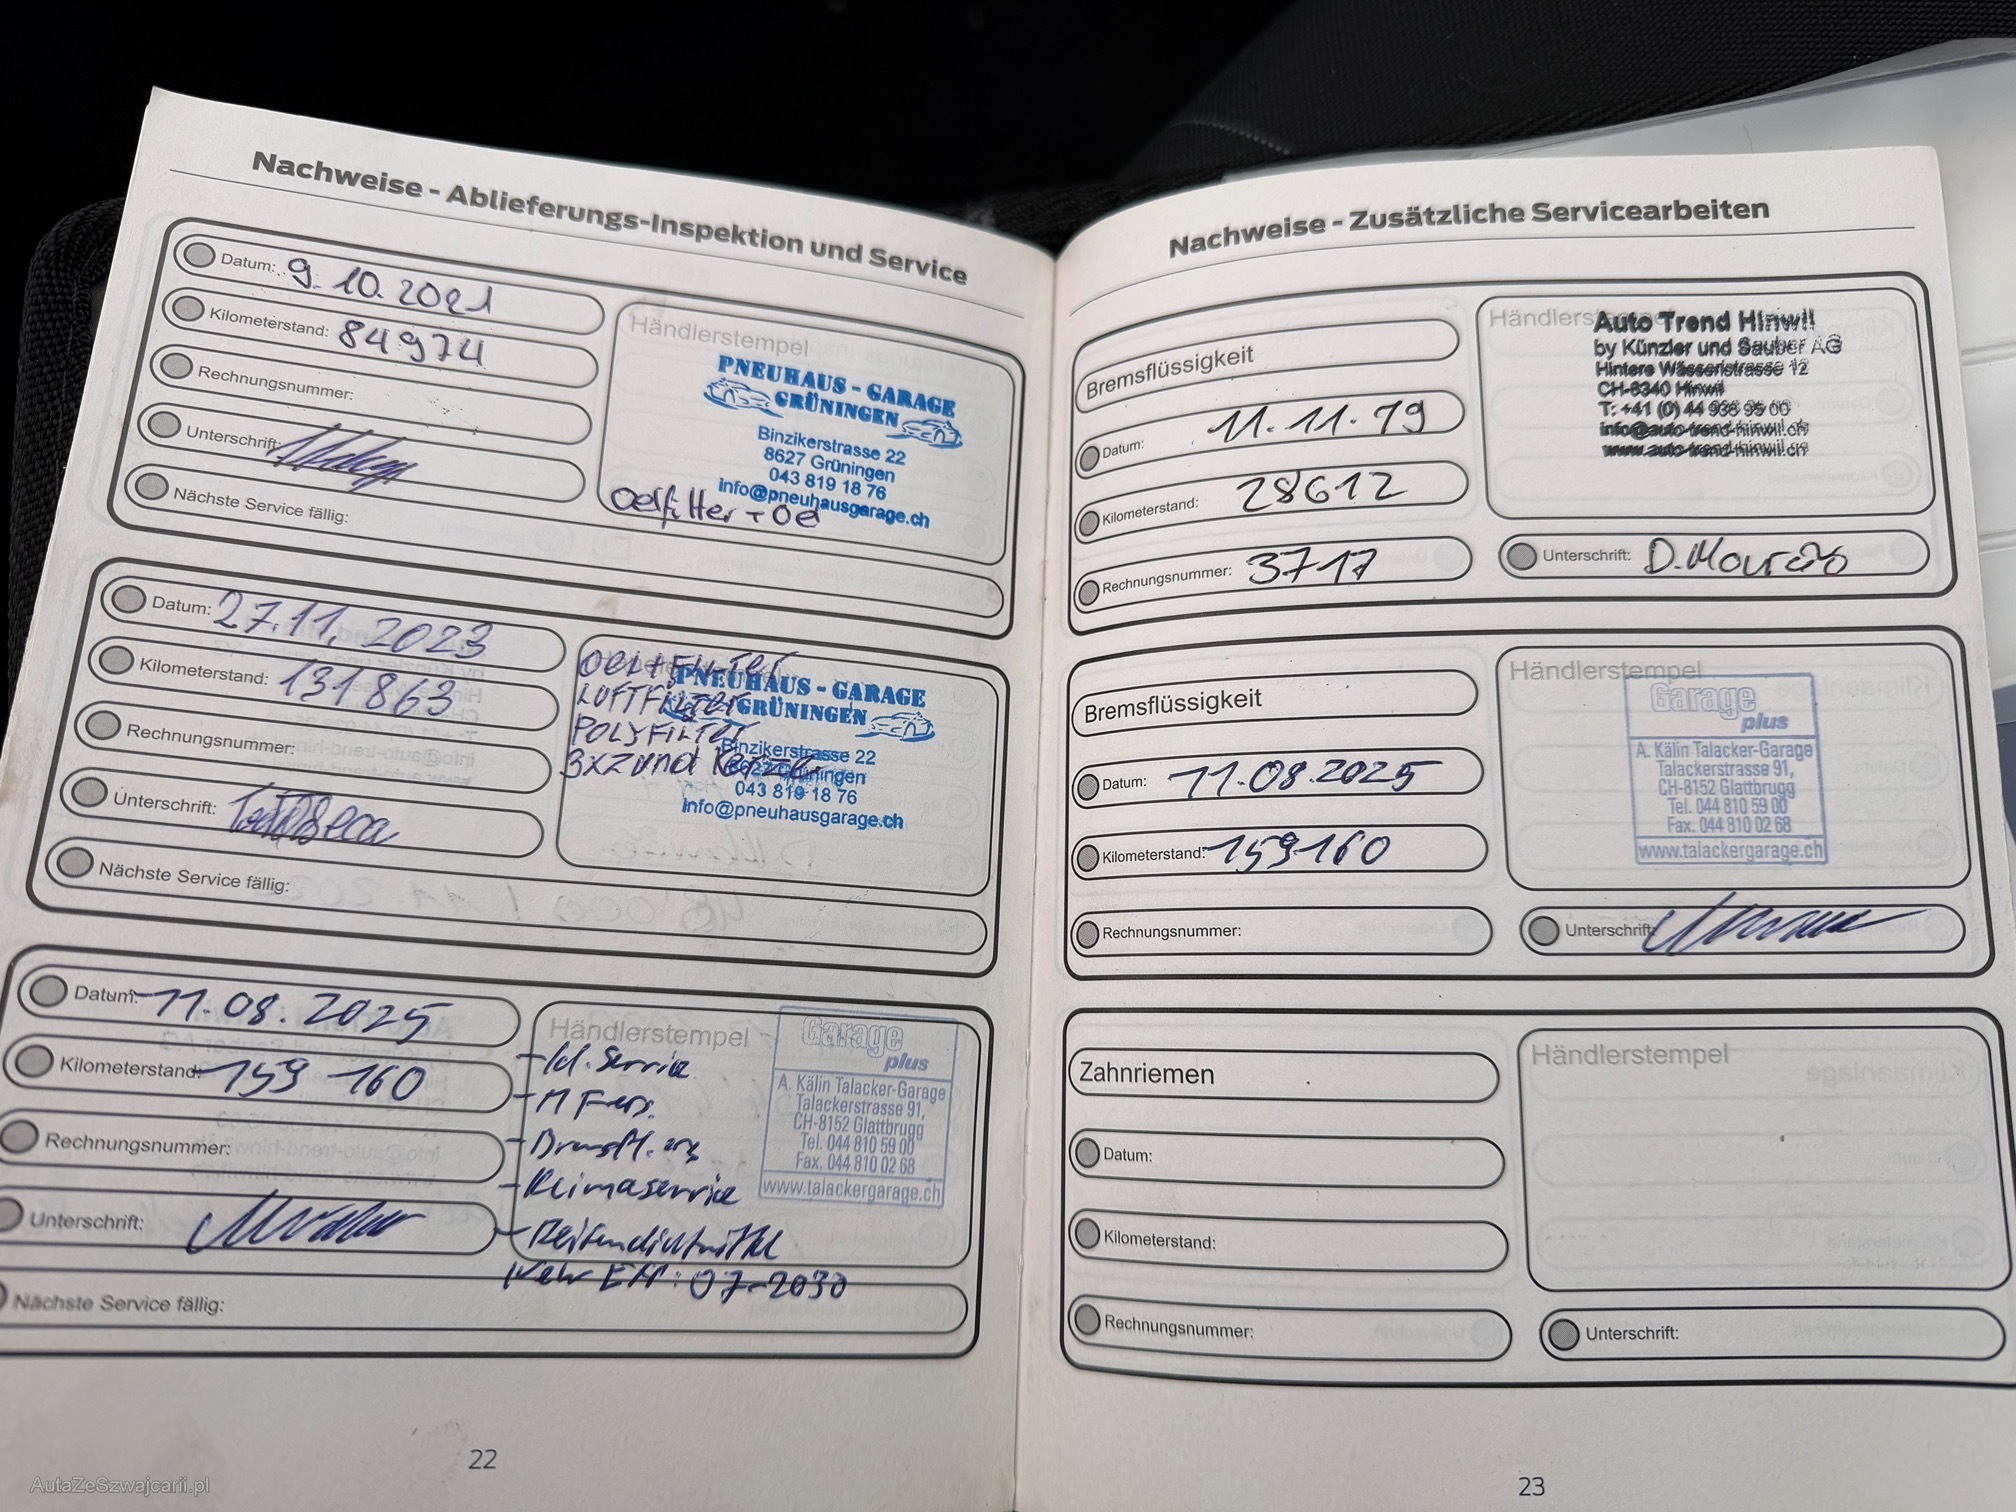 Nachweise - Ablieferungs-Inspektion und Service
Datum: 9.10.2021
Kilometerstand: 84974
Rechnungsnummer:
Unterschrift:
Nächste Service fällig:
Händlerstempel
PNEUHAUS - GARAGE
GRÜNINGEN
Binzikerstrasse 22
8627 Grüningen
043 819 18 76
info@pneuhausgarage.ch
Oelfilter + Oel
Datum: 27.11.2023
Kilometerstand: 131863
Rechnungsnummer:
Unterschrift:
Nächste Service fällig:
OEL+FILTER
LUFTFILTER
POLYFILTER
3xZund Kerze
PNEUHAUS - GARAGE
GRÜNINGEN
Binzikerstrasse 22
8627 Grüningen
043 819 18 76
info@pneuhausgarage.ch
Datum: 11.08.2025
Kilometerstand: 159 160
Rechnungsnummer:
Unterschrift:
Nächste Service fällig:
Händlerstempel
- Kl. Service
- Klimaservice
- Reifendichtmittel
07-2030
Garage
plus
A. Kälin Talacker-Garage
Talackerstrasse 91,
CH-8152 Glattbrugg
Tel. 044 810 59 00
Fax. 044 810 02 68
www.talackergarage.ch
22
Nachweise - Zusätzliche Servicearbeiten
Bremsflüssigkeit
Datum: 11.11.19
Kilometerstand: 28612
Rechnungsnummer: 3717
Händlerstempel
Auto Trend Hinwil
by Künzler und Sauber AG
Hintere Wässeristrasse 12
CH-8340 Hinwil
T: +41 (0) 44 938 95 00
info@auto-trend-hinwil.ch
www.auto-trend-hinwil.ch
Unterschrift:
Bremsflüssigkeit
Datum: 11.08.2025
Kilometerstand: 159160
Rechnungsnummer:
Händlerstempel
Garage
plus
A. Kälin Talacker-Garage
Talackerstrasse 91,
CH-8152 Glattbrugg
Tel. 044 810 59 00
Fax. 044 810 02 68
www.talackergarage.ch
Unterschrift:
Zahnriemen
Datum:
Kilometerstand:
Rechnungsnummer:
Händlerstempel
Unterschrift:
23
AutaZeSzwajcarii.pl